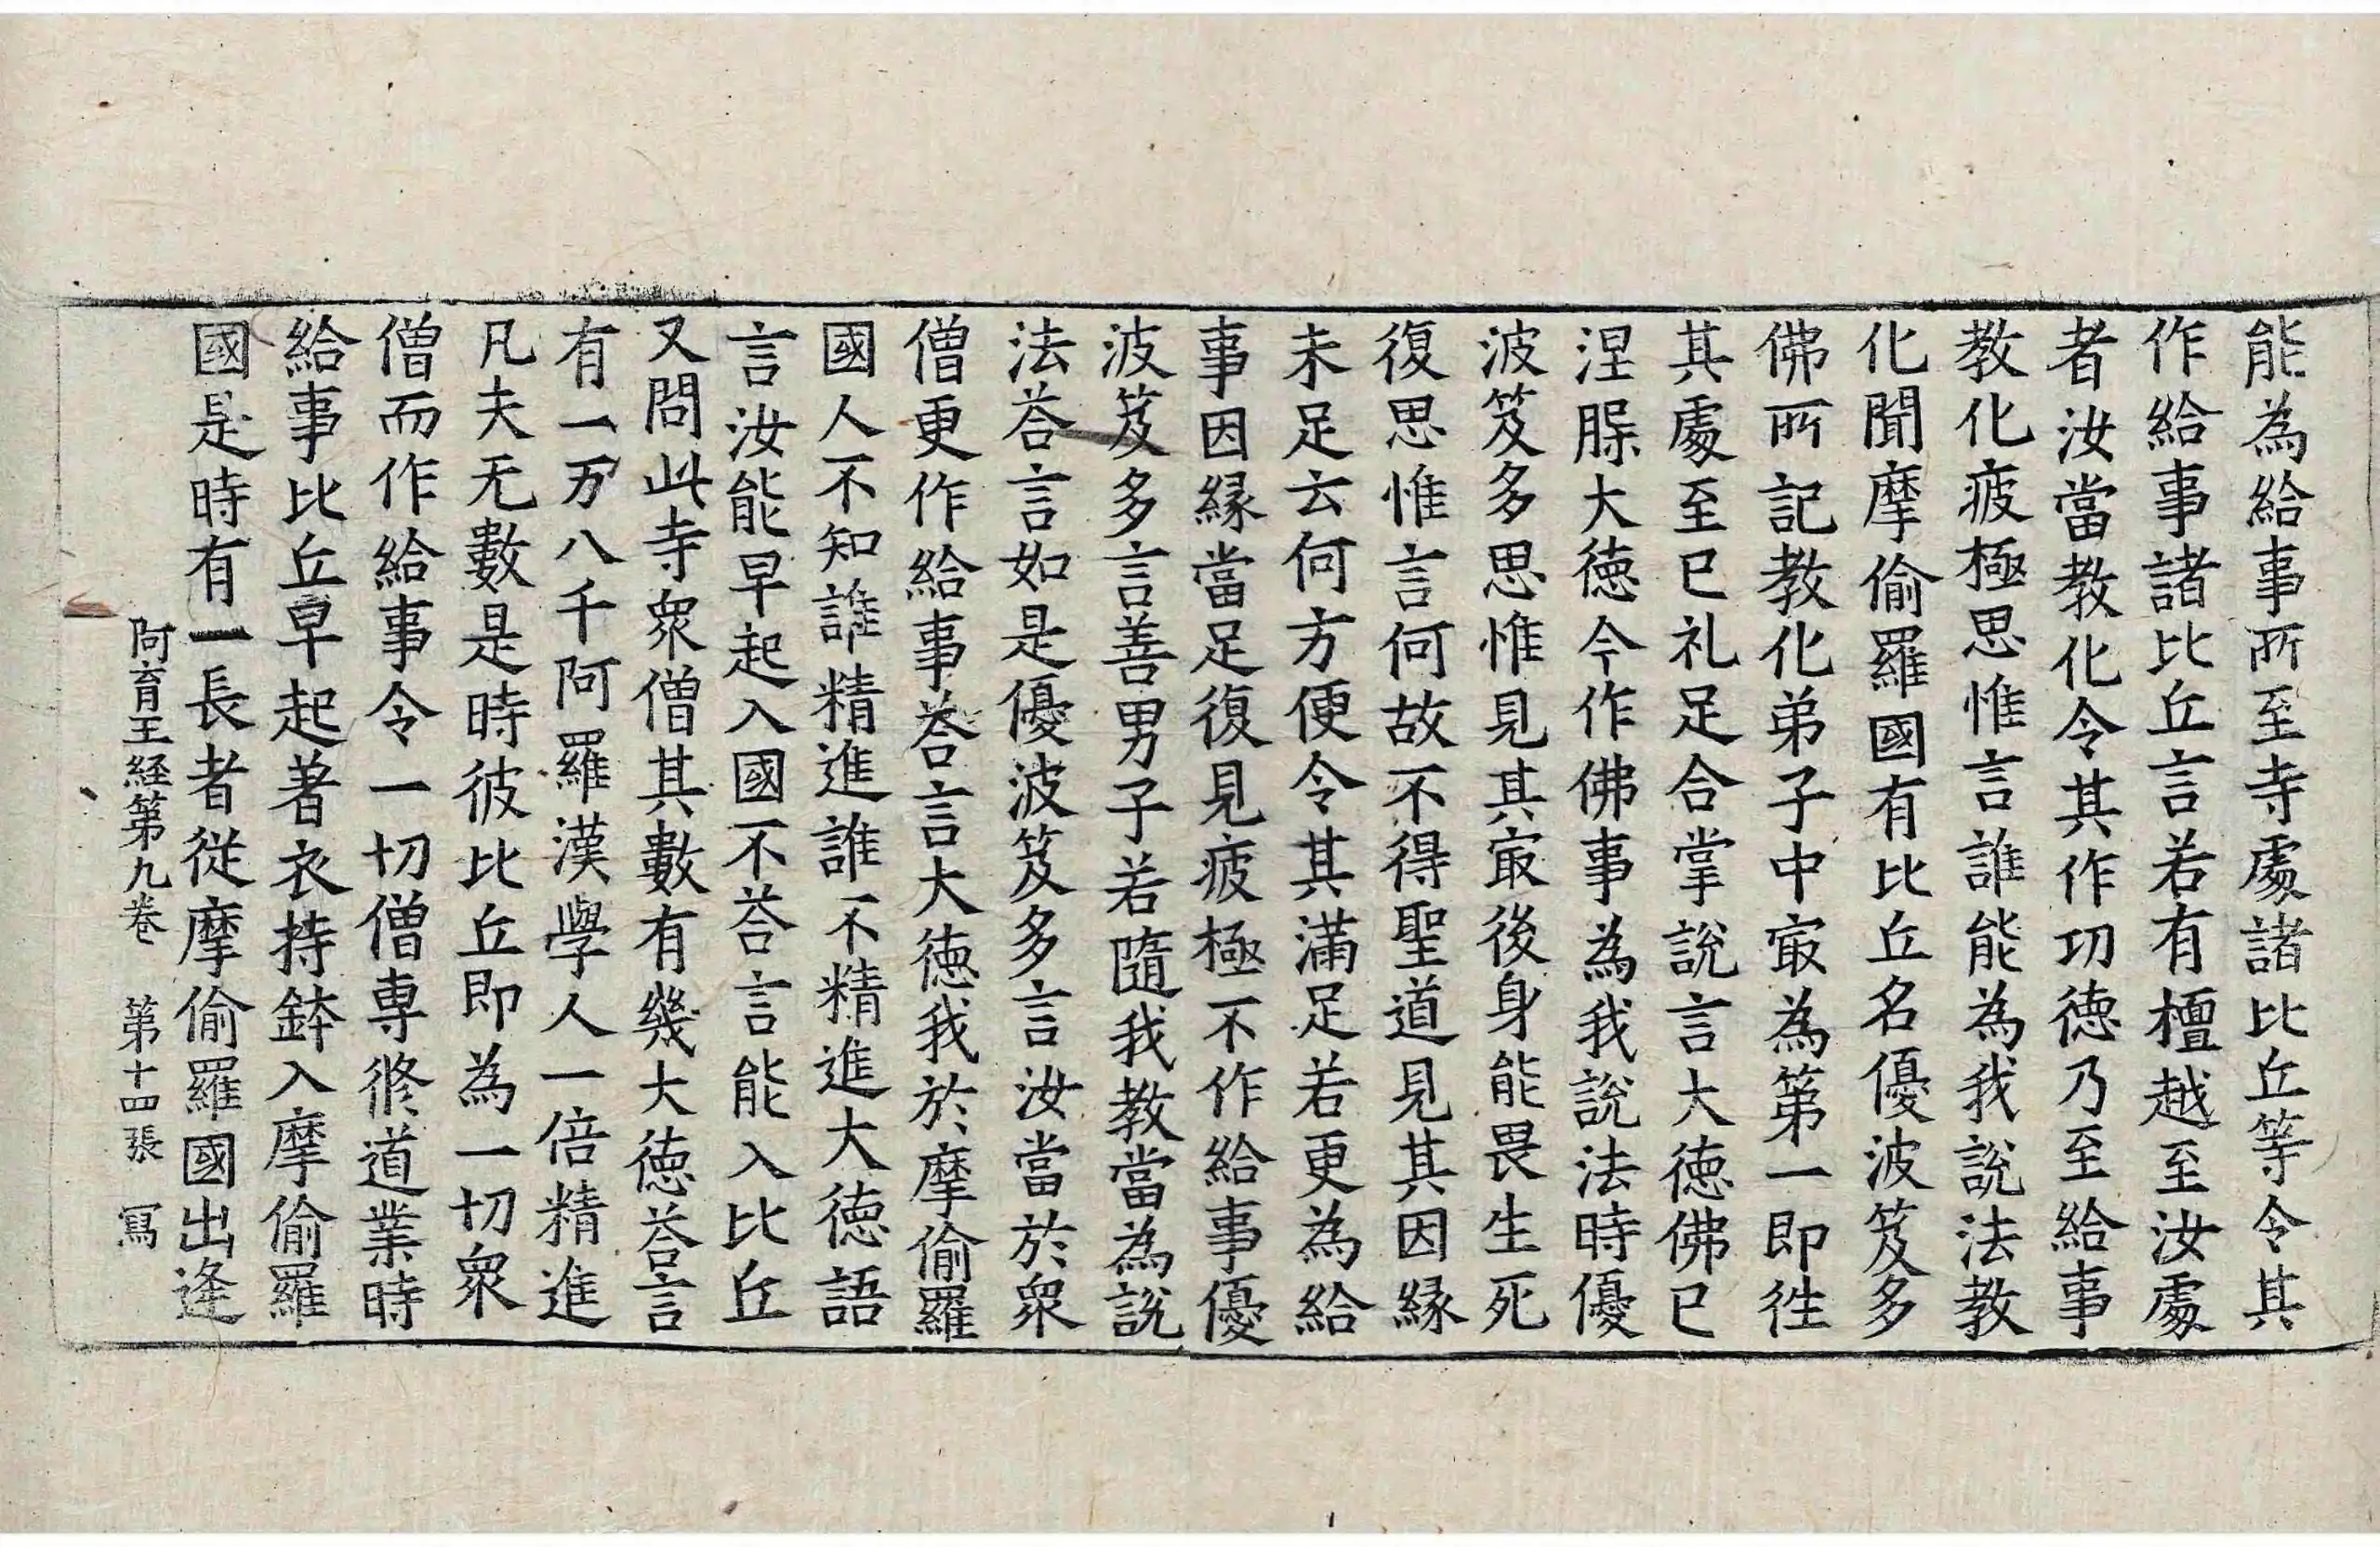 能為給事所至寺處諸比丘等令其
作給事諸比丘言若有檀越至汝處
者汝當教化令其作功徳乃至給事
教化疲極思惟言誰能為我說法教
化聞摩偷羅國有比丘名優波笈多
佛所記教化弟子中㝡為第一即徃
其處至已礼足合掌說言大徳佛已
涅脲大徳今作佛事為我說法時優
波笈多思惟見其㝡後身能畏生死
復思惟言何故不得聖道見其因縁
未足云何方便令其滿足若更為給
事因縁當足復見疲極不作給事優
波笈多言善男子若隨我教當為說
法荅言如是優波笈多言汝當於衆
僧更作給事荅言大徳我於摩偷羅
國人不知誰精進誰不精進大徳語
言汝能早起入國不荅言能入比丘
又問此寺衆僧其數有幾大徳荅言
有一万八千阿羅漢學人一倍精進
凡夫无數是時彼比丘即為一切衆
僧而作給事令一切僧専修道業時
給事比丘早起著衣持鉢入摩偷羅
國是時有一長者從摩偷羅國出逢
阿育王経第九卷 第十四張 寫